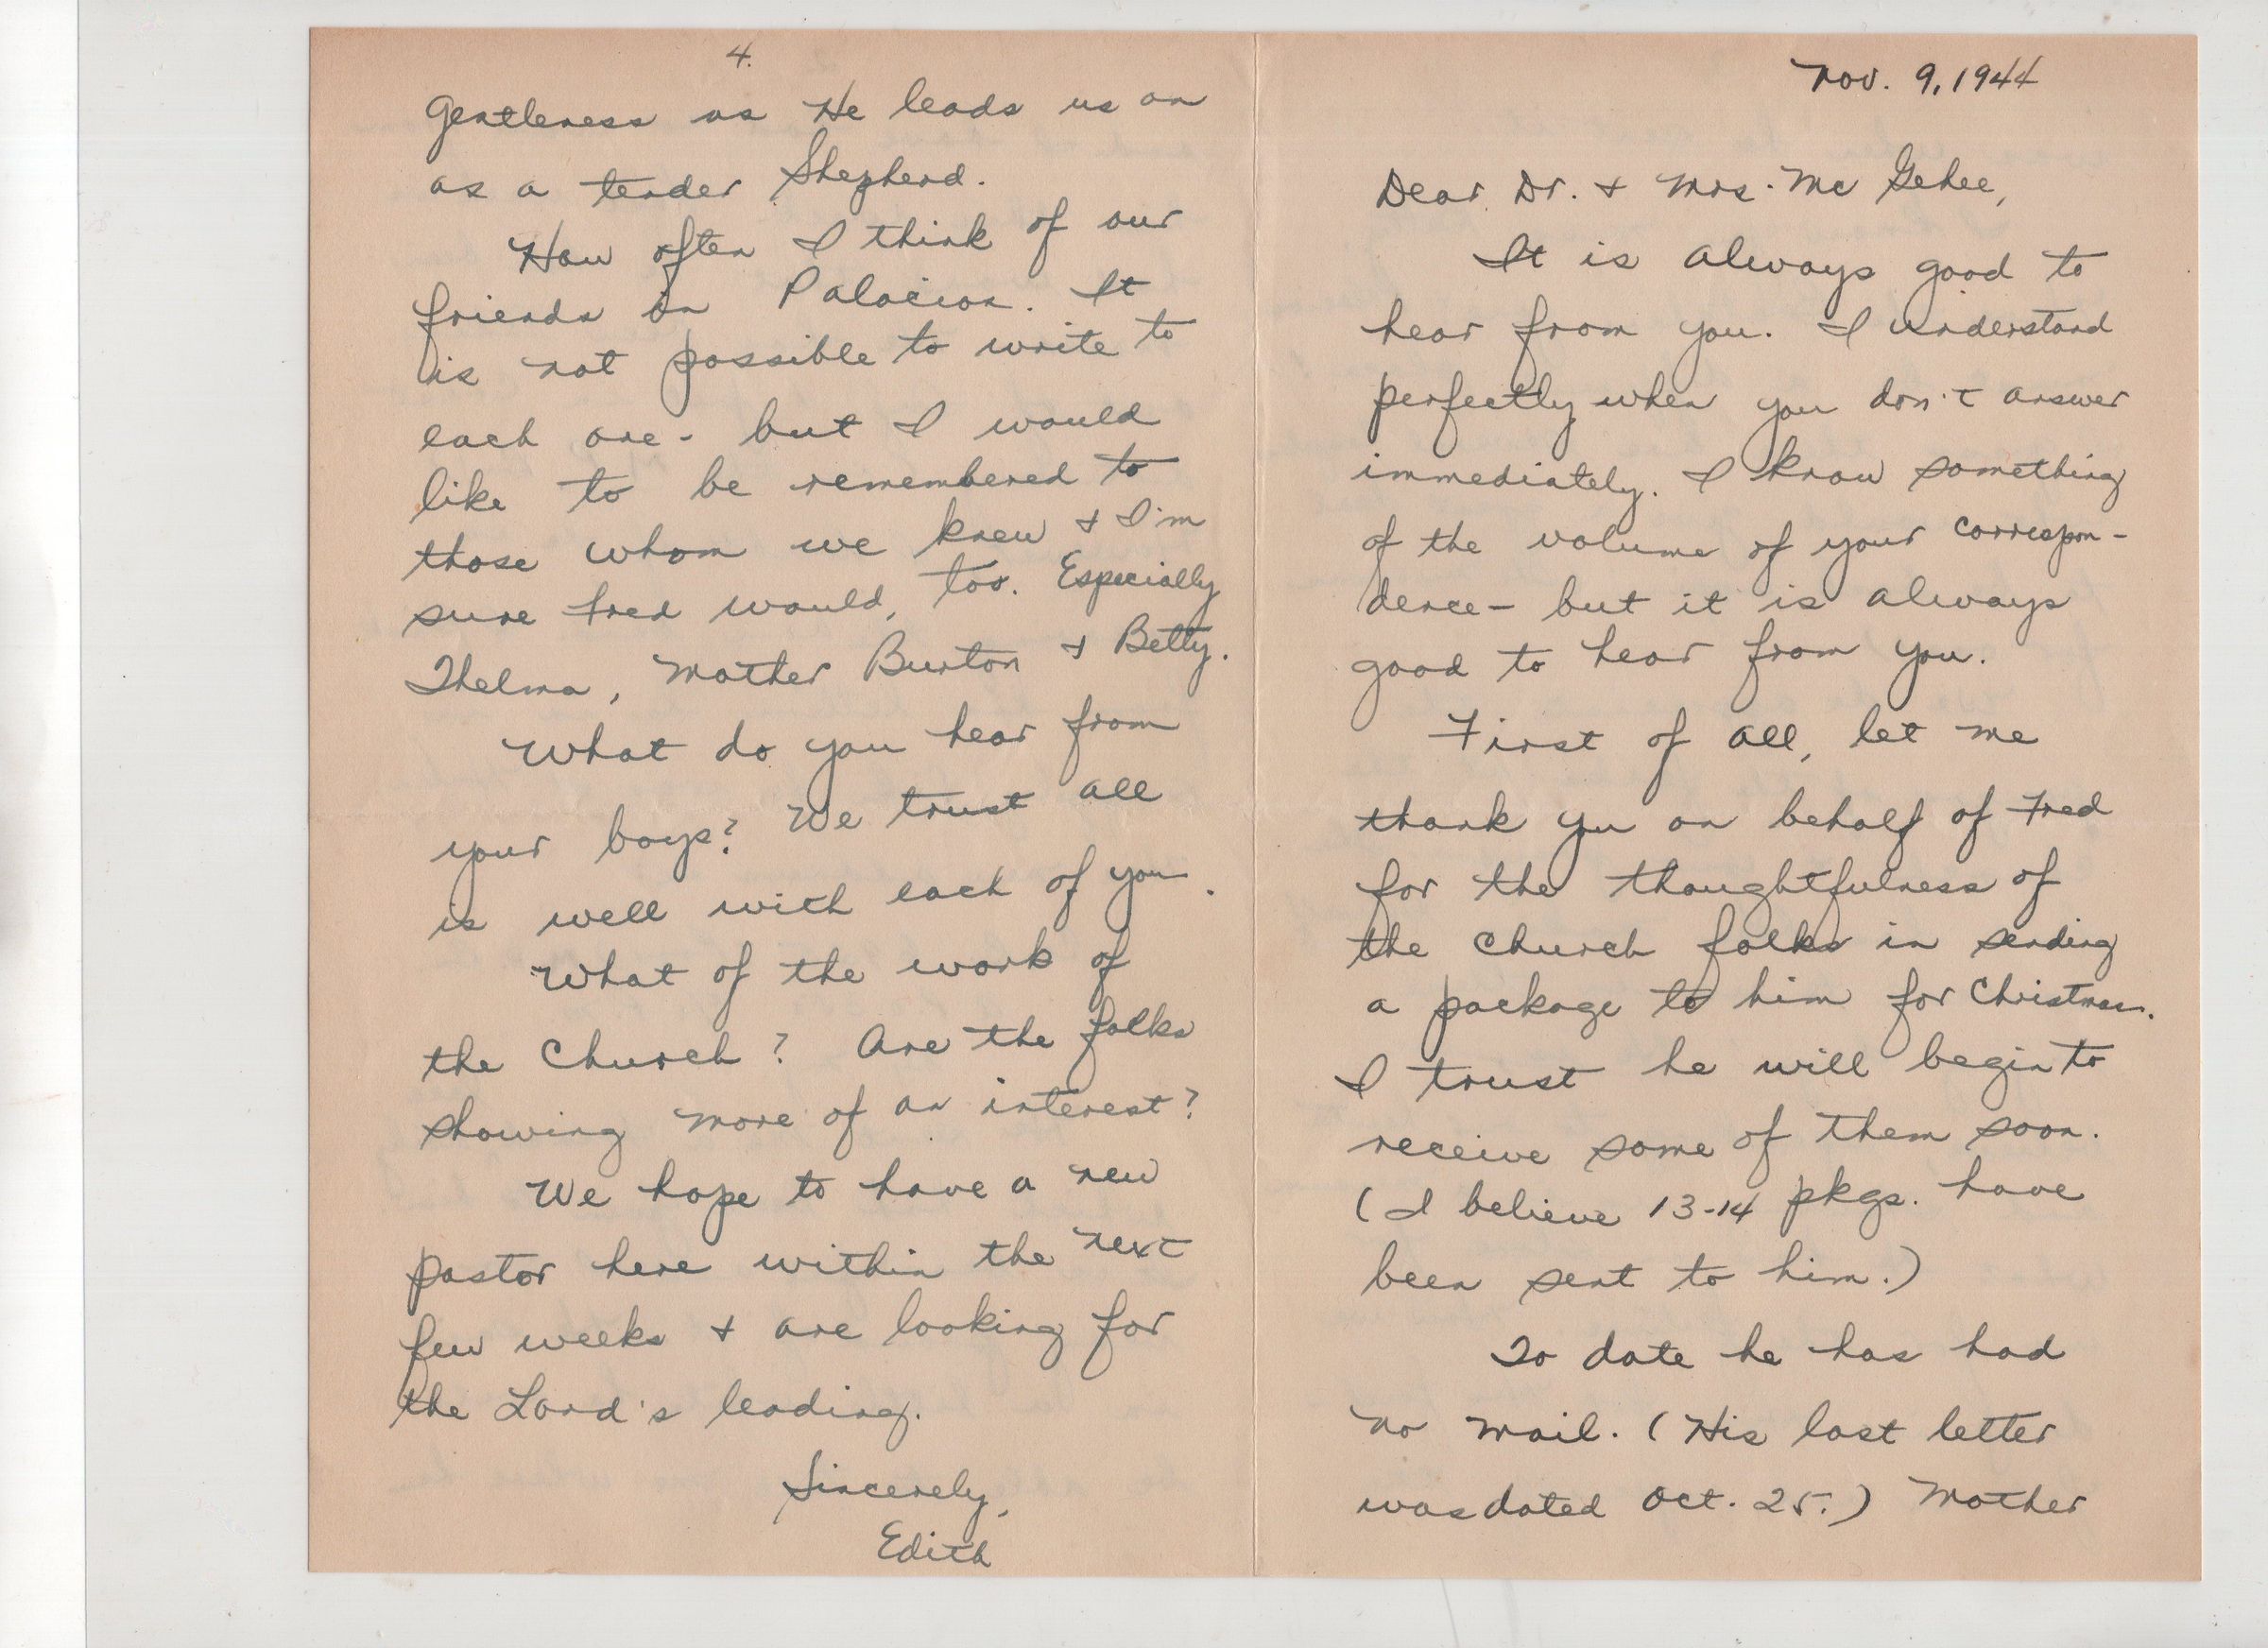 Nov. 9, 1944
Dear Dr. & Mrs. Mc Gehee,
It is always good to
hear from you. I understand
perfectly when you don't answer
immediately. I know something
of the volume of your correspon-
dence - but it is always
good to hear from you.
First of all, let me
thank you on behalf of Fred
for the thoughtfulness of
the Church folks in sending
a package to him for Christmas.
I trust he will begin to
receive some of them soon.
(I believe 13-14 pkgs. have
been sent to him.)
To date he has had
no mail. (His last letter
was dated Oct. 25.) Mother
4.
Gentleness as He leads us on
as a tender Shepherd.
How often I think of our
friends in Palacios. It
is not possible to write to
each one - but I would
like to be remembered to
those whom we knew & I'm
sure Fred would, too. Especially
Thelma, Mother Burton & Betty.
What do you hear from
your boys? We trust all
is well with each of you.
What of the work of
the Church? Are the folks
showing more of an interest?
We hope to have a new
pastor here within the next
few weeks & are looking for
the Lord's leading.
Sincerely,
Edith